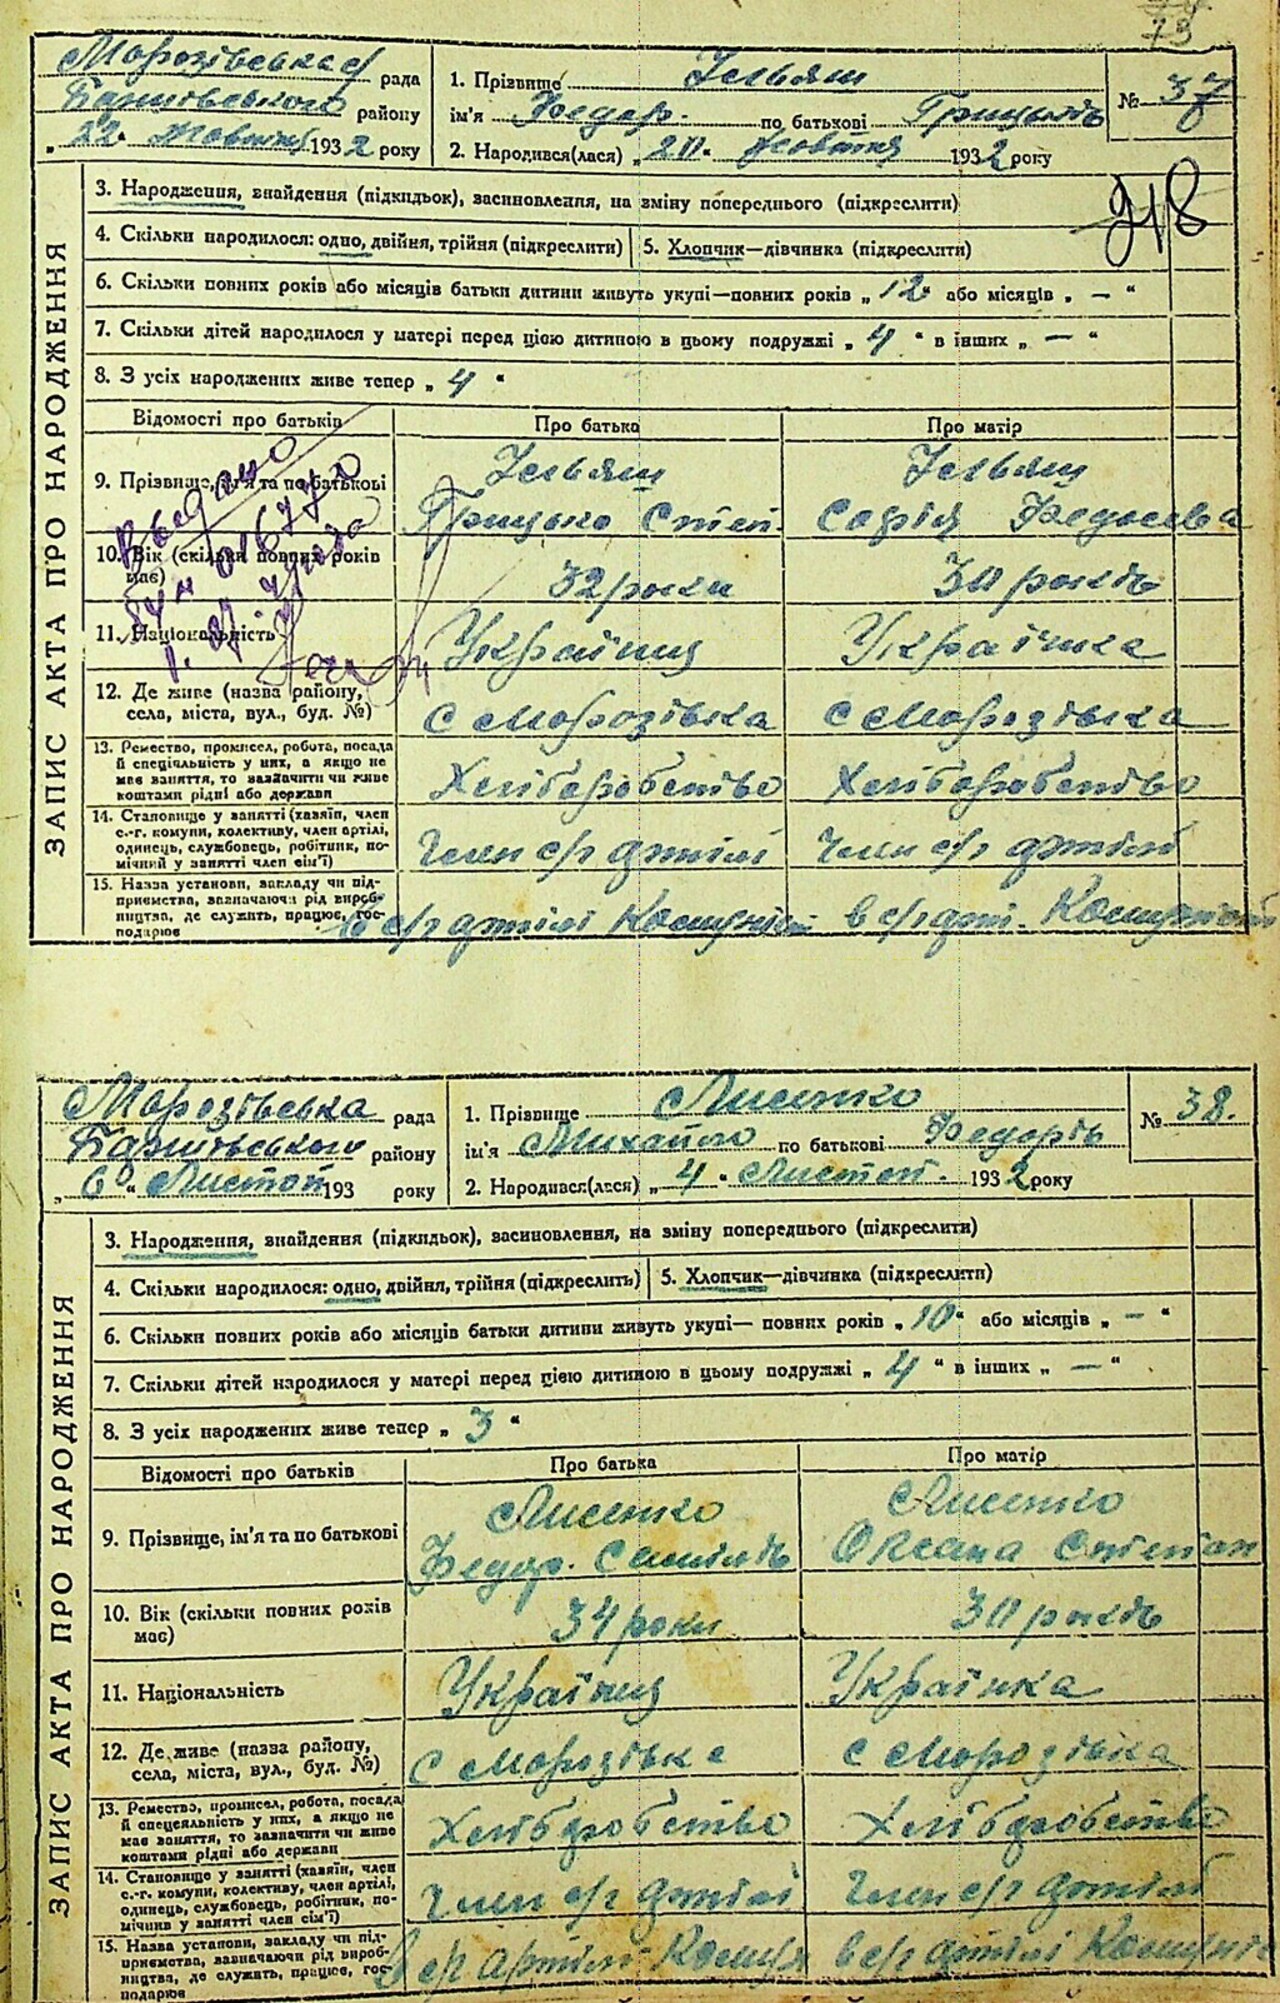 73
Морозівська с/ рада
Баришівського району
„ 22 " жовтня 1932 року
1. Прізвище Ільяш
ім'я Федор. по батькові Грицьків
2. Народився(лася) „ 20 " жовтня 1932 року
№ 37
918
ЗАПИС АКТА ПРО НАРОДЖЕННЯ
3. Народження, знайдення (підкидьок), засиновлення, на зміну попереднього (підкреслити)
4. Скільки народилося: одно, двійня, трійня (підкреслити)
5. Хлопчик—дівчинка (підкреслити)
6. Скільки повних років або місяців батьки дитини живуть укупі—повних років „ 12 " або місяців „ — "
7. Скільки дітей народилося у матері перед цією дитиною в цьому подружжі „ 4 " в інших „ — "
8. З усіх народжених живе тепер „ 4 "
Відомості про батьків Про батька Про матір
9. Прізвище, ім'я та по батькові
Ільяш Ільяш
Грицько Степ. Софія Федосієва
10. Вік (скільки повних років має)
32 роки 30 років
11. Національність
Українец Українка
12. Де живе (назва району,
села, міста, вул., буд. №)
с Морозівка с Морозівка
13. Ремество, промисел, робота, посада
й спеціяльність у них, а якщо не
має заняття, то зазначити чи живе
коштами рідні або держави
Хліборобство Хліборобство
14. Становище у занятті (хазяїн, член
с.-г. комуни, колективу, член артілі,
одинець, службовець, робітник, по-
мічний у занятті член сім'ї)
Член с/г артілі Член с/г артілі
15. Назва установи, закладу чи під-
приємства, зазначаючи рід вироб-
ництва, де служить, працює, гос-
подарює
в с/г артілі Комуніст в с/г арт. Комуніст
Морозівська рада
Баришівського району
„ 6 " Листоп 193 року
1. Прізвище Лисенко
ім'я Михайло по батькові Федорів
2. Народився(лася) „ 4 " Листоп. 1932 року
№ 38.
ЗАПИС АКТА ПРО НАРОДЖЕННЯ
3. Народження, знайдення (підкидьок), засиновлення, на зміну попереднього (підкреслити)
4. Скільки народилося: одно, двійня, трійня (підкреслить)
5. Хлопчик—дівчинка (підкреслити)
6. Скільки повних років або місяців батьки дитини живуть укупі— повних років „ 10 " або місяців „ — "
7. Скільки дітей народилося у матері перед цією дитиною в цьому подружжі „ 4 " в інших „ — "
8. З усіх народжених живе тепер „ 3 "
Відомості про батьків Про батька Про матір
9. Прізвище, ім'я та по батькові
Лисенко Лисенко
Федор. Оксана Степан
10. Вік (скільки повних років
має)
34 роки 30 років
11. Національність
Українец Українка
12. Де живе (назва району,
села, міста, вул., буд. №)
с Морозівка с Морозівка
13. Ремество, промисел, робота, посада
й спецеяльність у них, а якщо не
має заняття, то зазначити чи живе
коштами рідні або держави
Хліборобство Хліборобство
14. Становище у занятті (хазяїн, член
с.-г. комуни, колективу, член артілі,
одинець, службовець, робітник, по-
мічник у занятті член сім'ї)
Член с/г артілі Член с/г артілі
15. Назва установи, закладу чи під-
приємства, зазначаючи рід вироб-
ництва, де служить, працює, гос-
подарює
в с/г артілі Комун в с/г артілі Комуніс